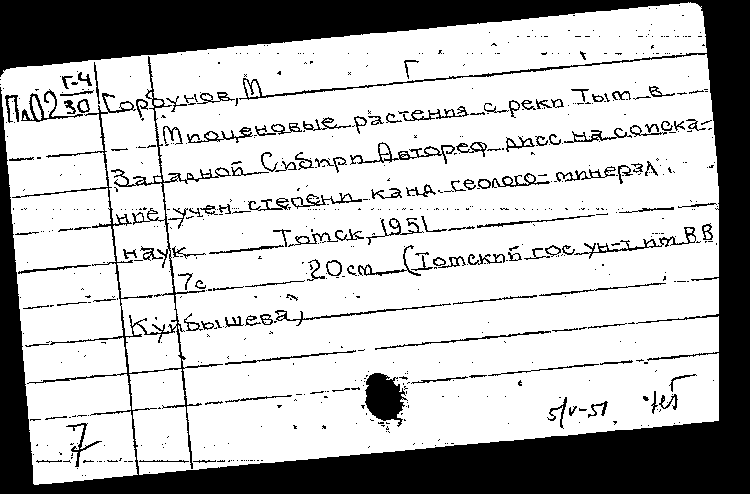 Г-4
Пл02 30 Горбунов, М Г
Миоценовые растения с реки Тым в
Западной Сибири Автореф дисс на соиска-
ние учен степени канд. геолого-минерал.
наук Томск, 1951
7с 20см (Томский гос ун-т им ВВ
Куйбышева)
5/V-51.
7